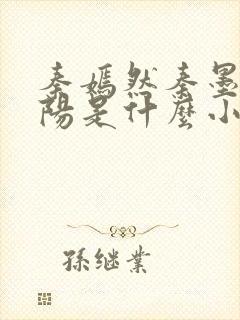 秦嫣然秦墨
陽是什麼小
孫继業